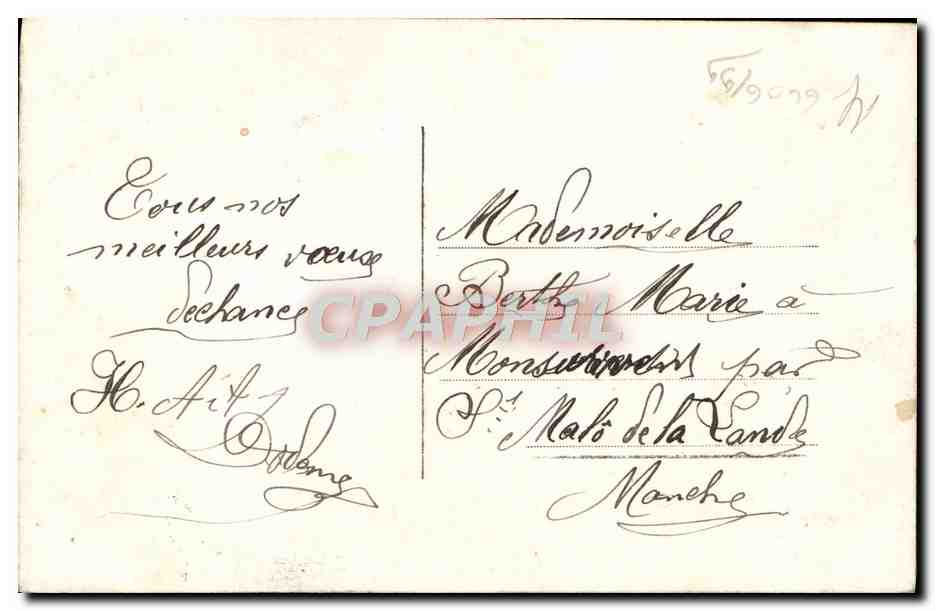 Tous nos
meilleurs vœux
de chance
H. Aît
Mademoiselle
Berthe Marie à
par
St Malô de la Lande
Manche
CPAPHIL